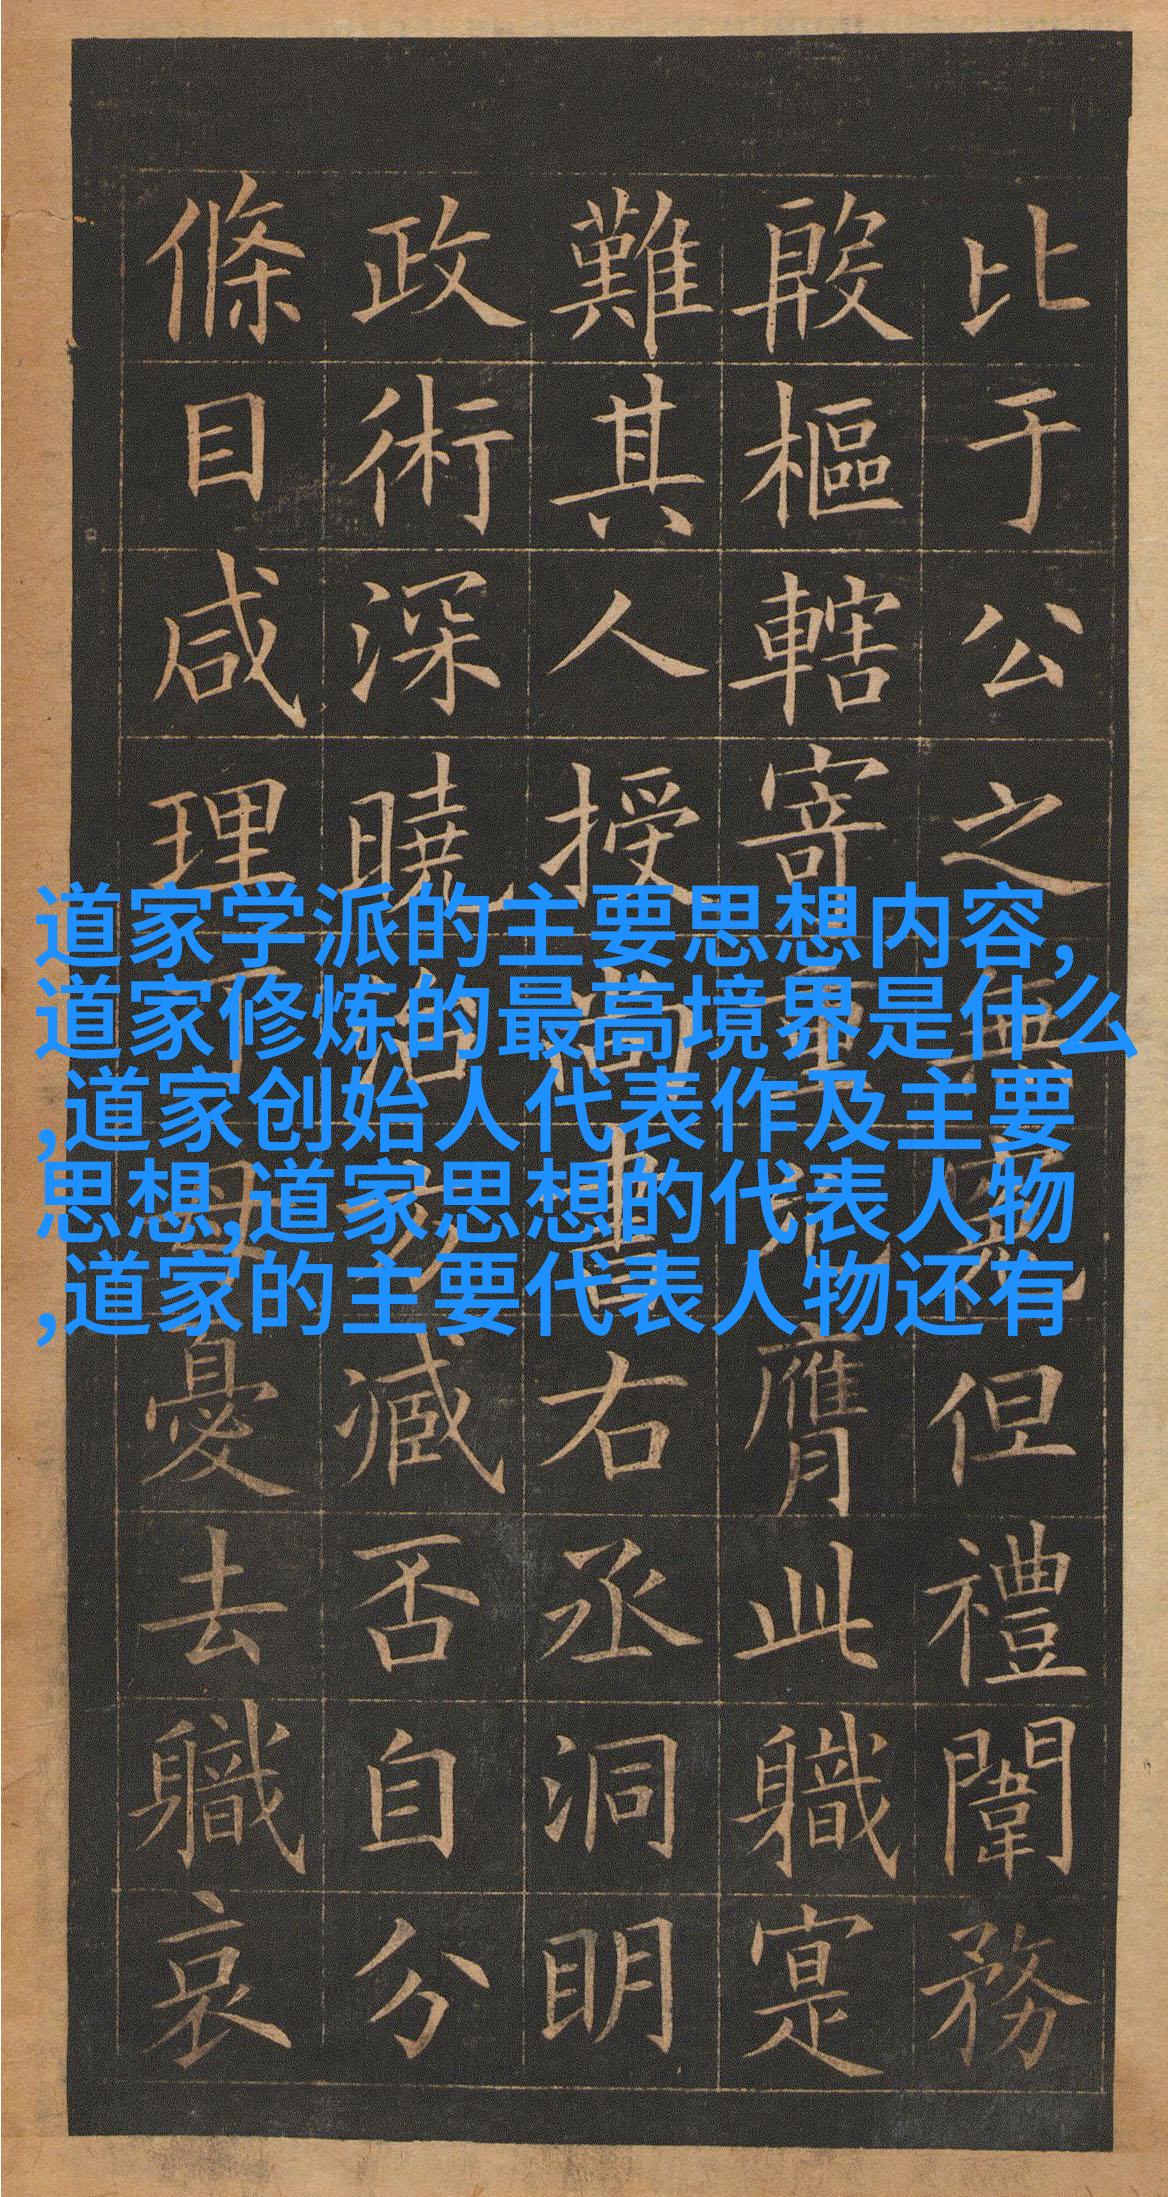 比于公之無冤但禮闈務
殷樞轄寄重允膺此職寔
難其人授尚書右丞洞明
政術深曉治方臧否自分
條目咸理丁母憂去職哀
道家学派的主要思想内容,
道家修炼的最高境界是什么
,道家创始人代表作及主要
思想,道家思想的代表人物
,道家的主要代表人物还有